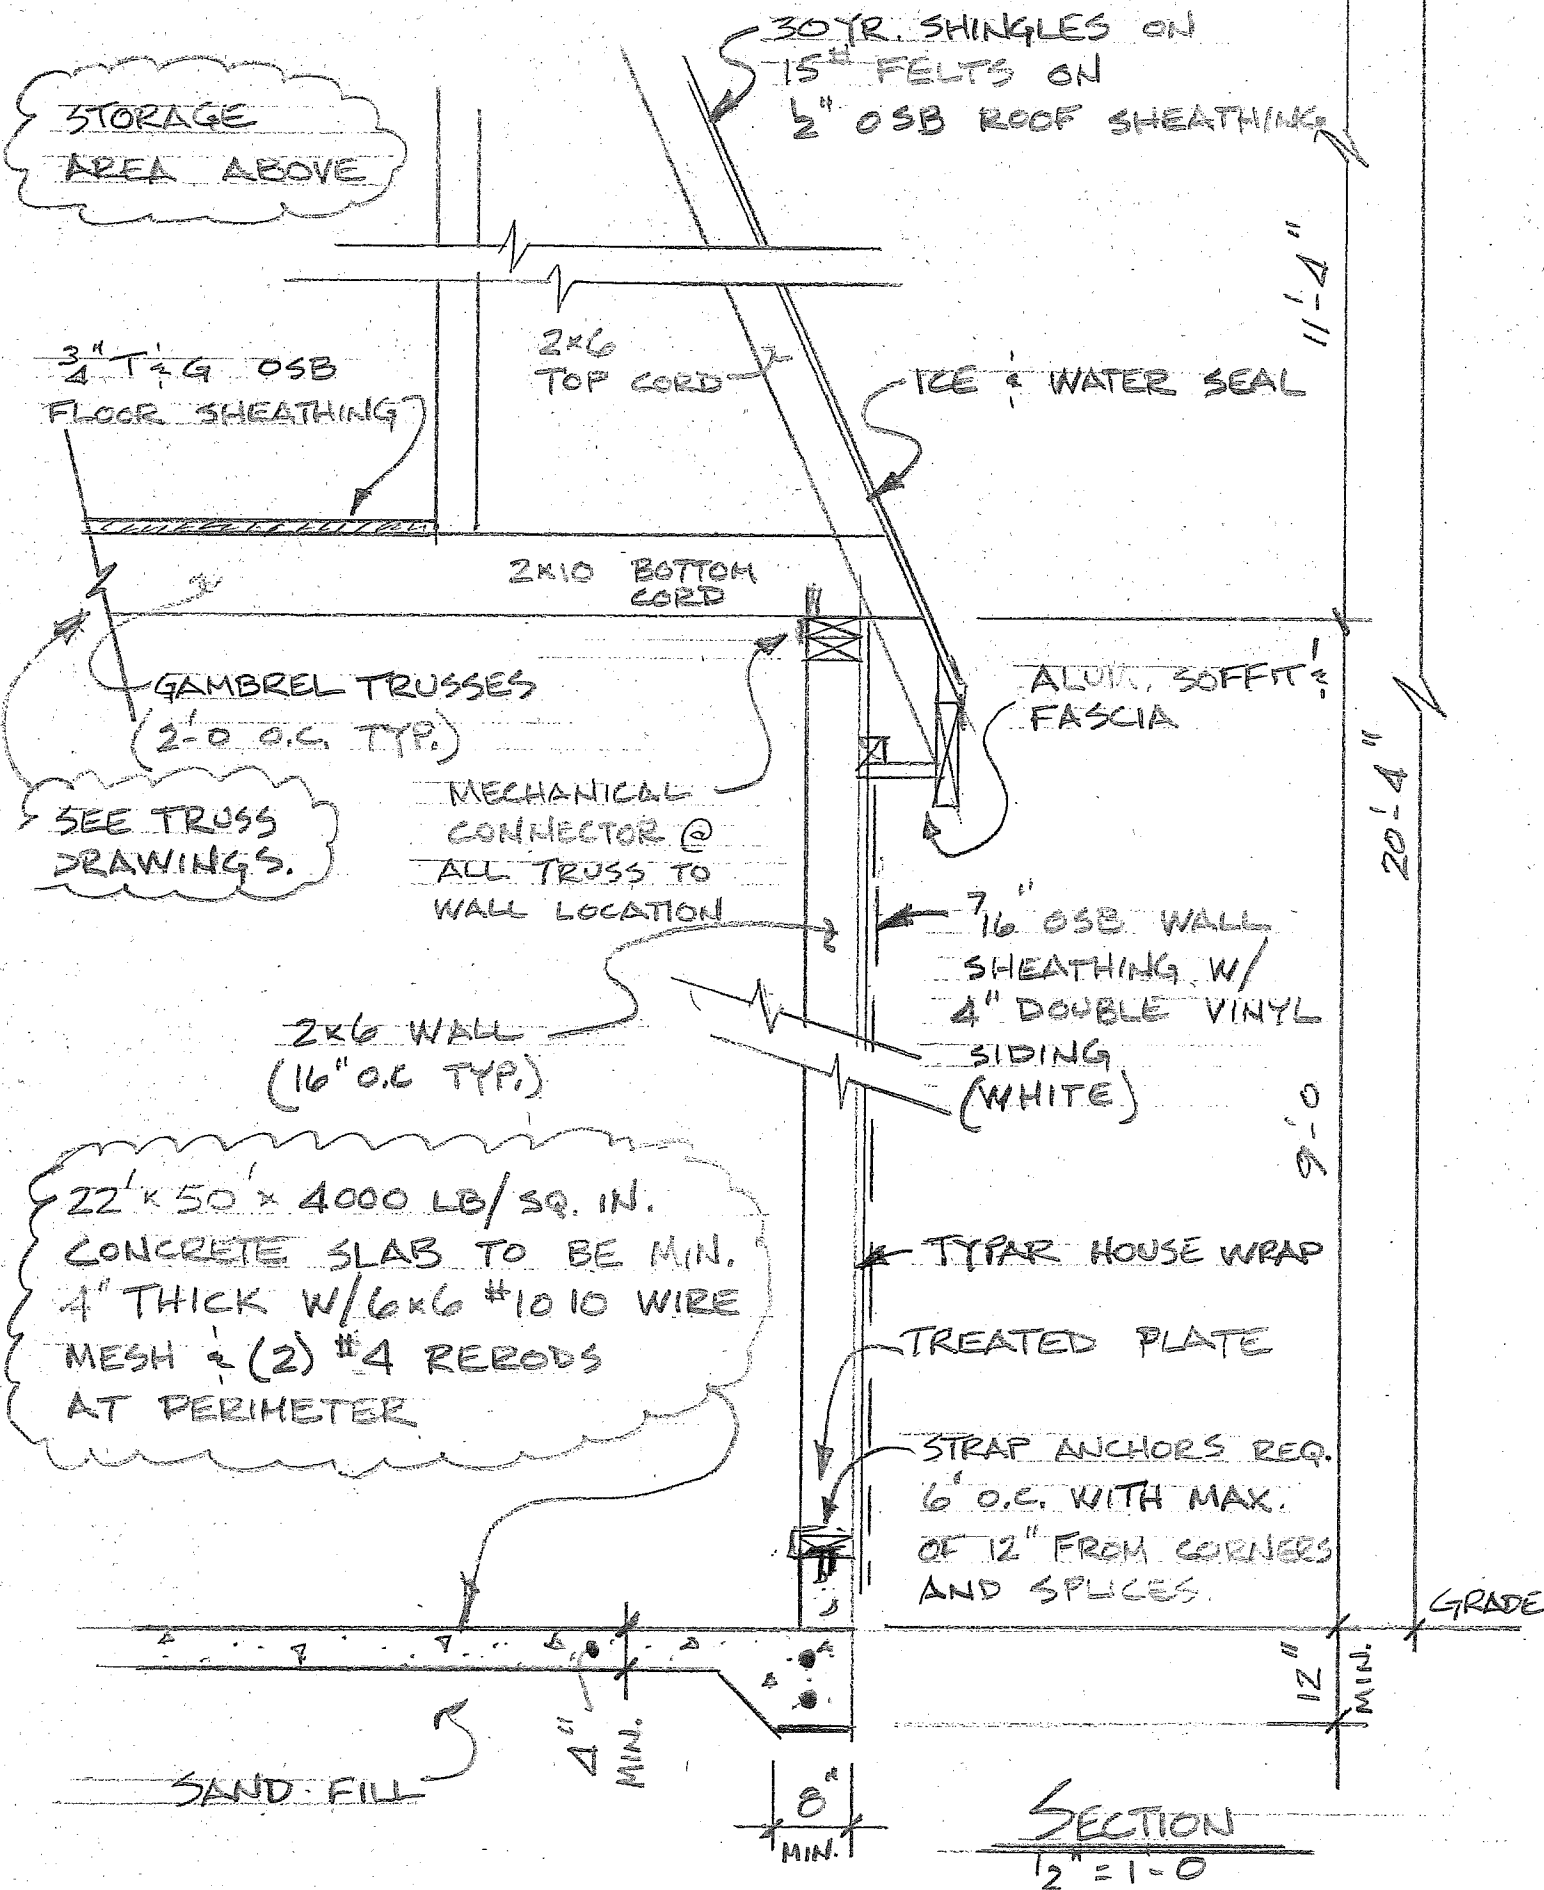 30 YR. SHINGLES ON
15# FELTS ON
1/2" OSB ROOF SHEATHING
STORAGE
AREA ABOVE
11'-4"
3/4" T & G OSB
FLOOR SHEATHING
2x6
TOP CORD
ICE & WATER SEAL
2x10 BOTTOM
CORD
GAMBREL TRUSSES
(2'-0 O.C. TYP.)
ALUM. SOFFIT &
FASCIA
SEE TRUSS
DRAWINGS.
MECHANICAL
CONNECTOR @
ALL TRUSS TO
WALL LOCATION
20'-4"
7/16" OSB WALL
SHEATHING W/
4" DOUBLE VINYL
SIDING
(WHITE)
2x6 WALL
(16" O.C TYP.)
9'-0
22' x 50' x 4000 LB/SQ. IN.
CONCRETE SLAB TO BE MIN.
4" THICK W/6x6 #10 10 WIRE
MESH & (2) #4 RERODS
AT PERIMETER
TYPAR HOUSE WRAP
TREATED PLATE
STRAP ANCHORS REQ.
6' O.C. WITH MAX.
OF 12" FROM CORNERS
AND SPLICES.
GRADE
12"
MIN.
4"
MIN.
SAND FILL
8"
MIN.
SECTION
1/2" = 1'-0